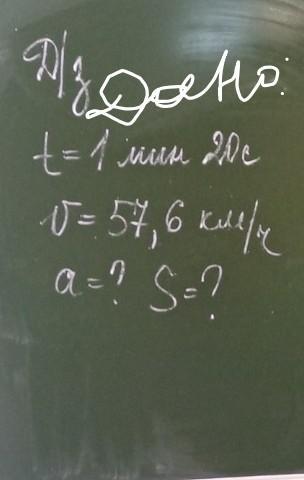 Д/з Дано:
t = 1 мин 20с
v = 57,6 км/ч
a = ? S = ?